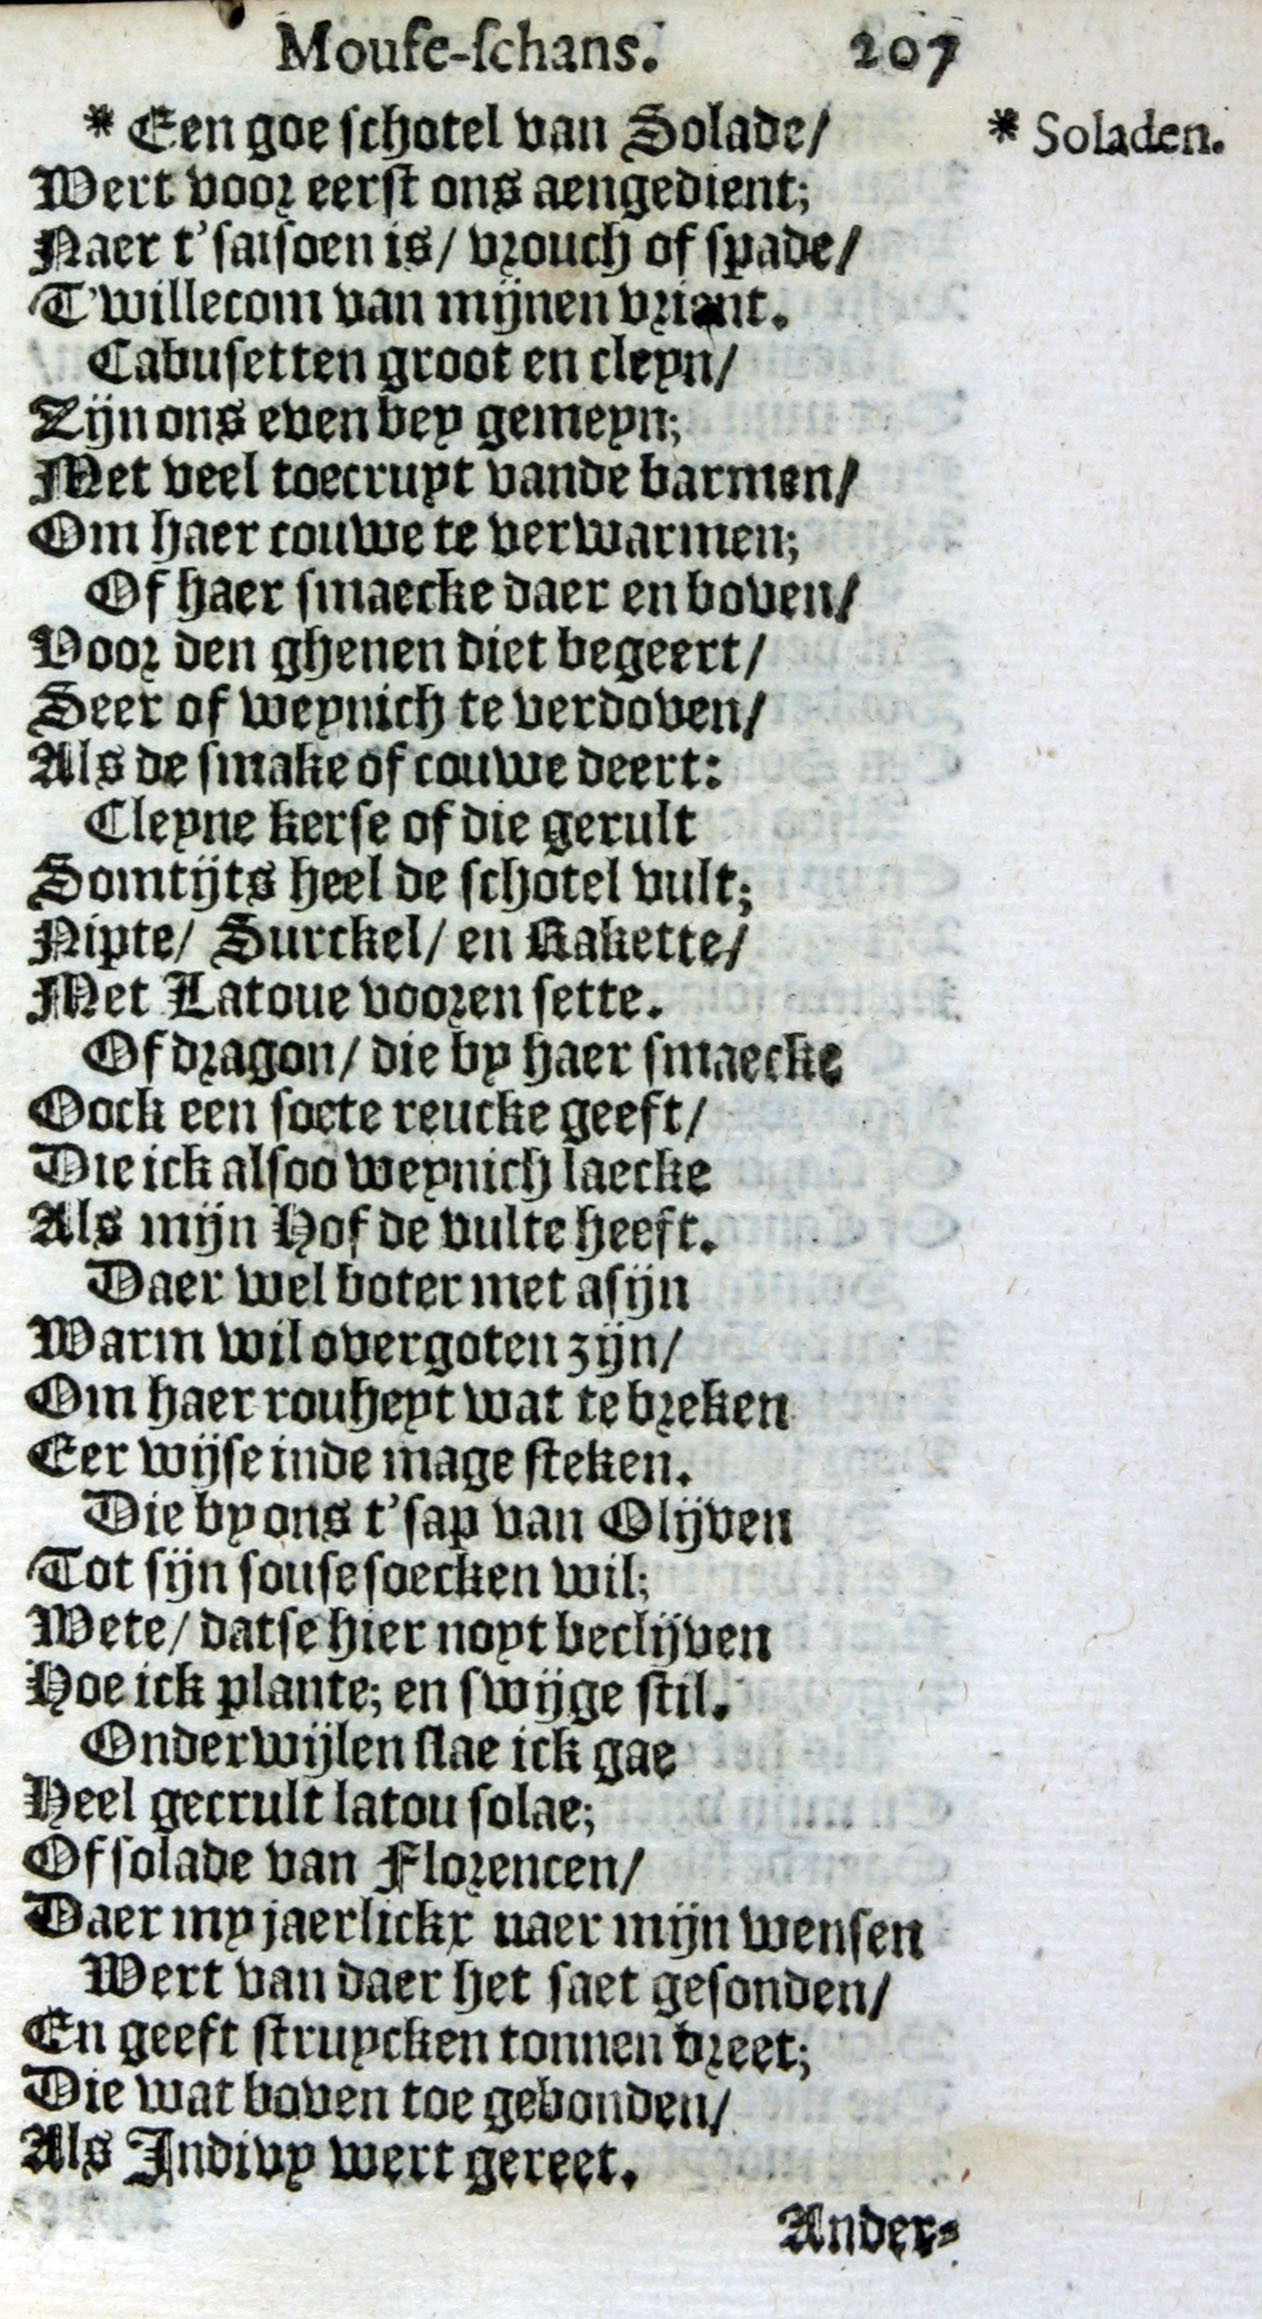 Mouſe-ſchans. 207
* Een goe ſchotel van Solade/
* Soladen.
Wert voor eerſt ons aengedient;
Naer t'ſaiſoen is/ vrouch of ſpade/
T'willecom van mijnen vriant.
Cabuſetten groot en cleyn/
Zijn ons even bey gemeyn;
Met veel toecruyt vande barmen/
Om haer couwe te verwarmen;
Of haer ſmaecke daer en boven/
Voor den ghenen diet begeert/
Seer of weynich te verdoven/
Als de ſmake of couwe deert:
Cleyne kerſe of die gerult
Somtijts heel de ſchotel vult;
Nipte/ Surckel/ en Rakette/
Met Latoue vooren ſette.
Of dragon/ die by haer ſmaecke
Oock een ſoete reucke geeft/
Die ick alſoo weynich laecke
Als mijn Hof de vulte heeft.
Daer wel boter met aſijn
Warm wil overgoten zijn/
Om haer rouheyt wat te breken
Eer wijſe inde mage ſteken.
Die by ons t'ſap van Olijven
Tot ſijn ſouſe ſoecken wil;
Wete/ datſe hier noyt beclijven
Hoe ick plante; en ſwijge ſtil.
Onderwijlen ſlae ick gae
Heel gecrult latou ſolae;
Of ſolade van Florencen/
Daer my jaerlickx naer mijn wenſen
Wert van daer het ſaet geſonden/
En geeft ſtruycken tonnen breet;
Die wat boven toe gebonden/
Als Indivy wert gereet.
Ander-